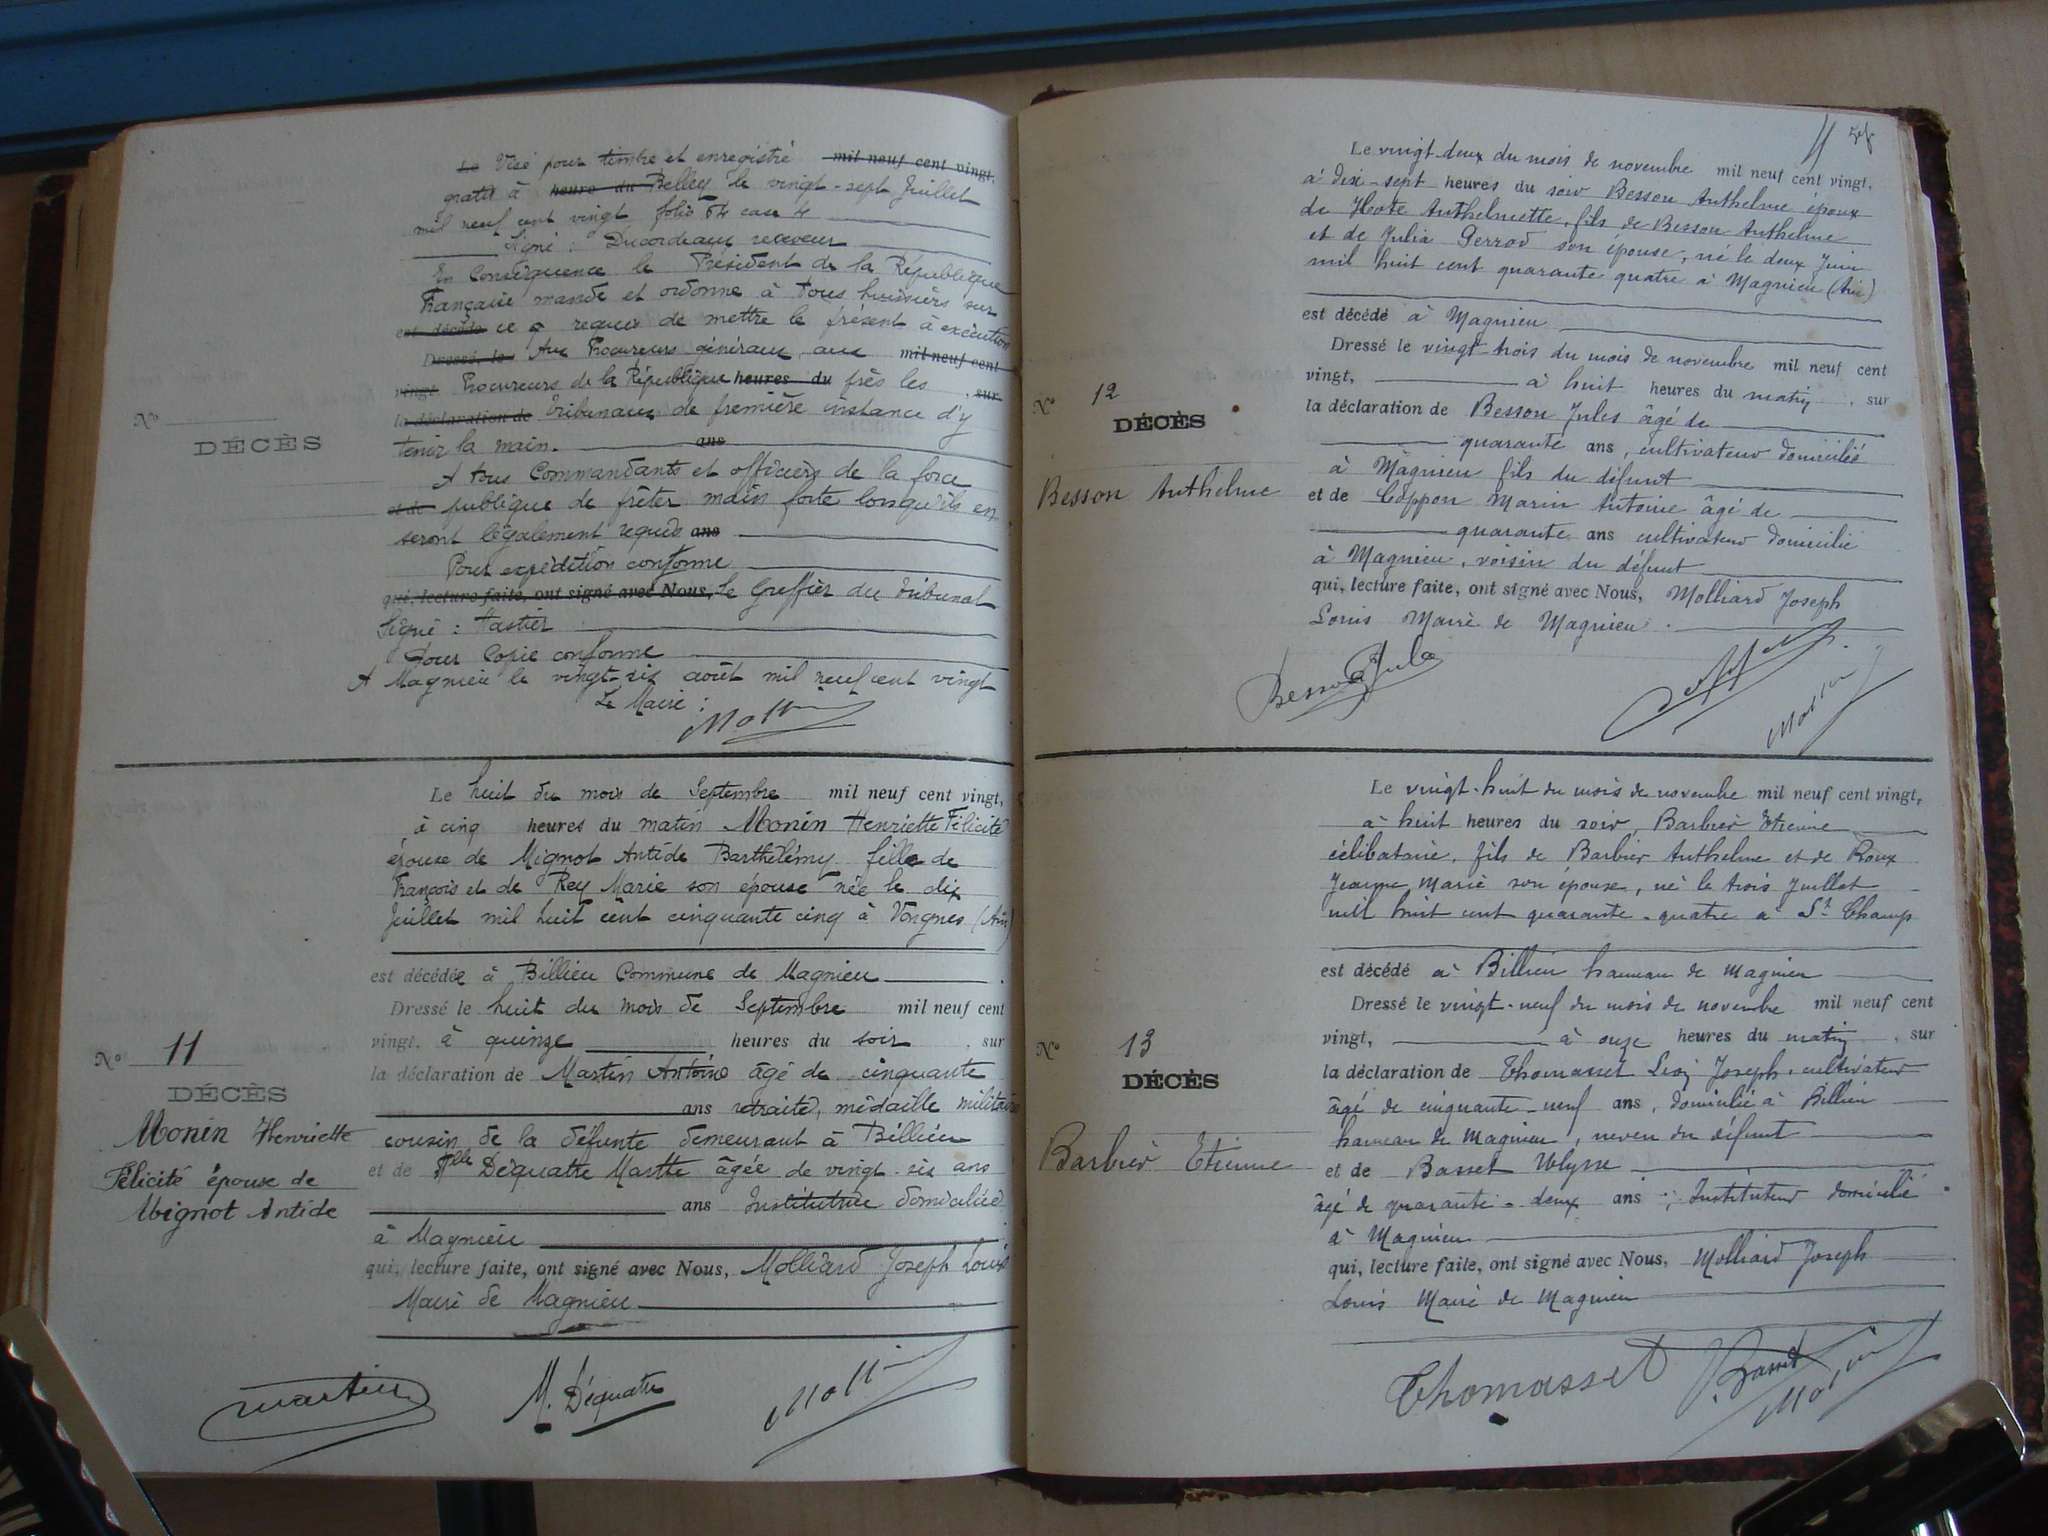 Le Visé pour timbre et enregistré mil neuf cent vingt,
gratis à heure du Belley le vingt-sept Juillet
mil neuf cent vingt folio 54 case 4
Signé : Ducordeaux receveur
En Conséquence le Président de la République
Française mande et ordonne à tous huissiers sur
est décédé ce requis de mettre le présent à exécution
Dressé le Aux Procureurs généraux, aux mil neuf cent
vingt. Procureurs de la République heures du près les , sur
la déclaration de Tribunaux de première instance d'y
N°
DÉCÈS
tenir la main. ans
A tous Commandants et officiers de la force
et de publique de prêter main forte lorsqu'ils en
seront légalement requis ans
Pour expédition conforme
qui, lecture faite, ont signé avec Nous, Le Greffier du Tribunal
Signé : Tastier
Pour Copie conforme
A Magnieu le vingt-six août mil neuf cent vingt
Le Maire :
Le huit du mois de Septembre mil neuf cent vingt,
à cinq heures du matin Monin Henriette Félicité
épouse de Mignot Antide Barthélémy fille de
François et de Rey Marie son épouse née le dix
Juillet mil huit cent cinquante cinq à Vongnes (Ain)
est décédée à Billieu Commune de Magnieu
Dressé le huit du mois de Septembre mil neuf cent
vingt. à quinze heures du soir , sur
N° 11
DÉCÈS
Monin Henriette
Félicité épouse de
Mignot Antide
la déclaration de Martin Antoine âgé de cinquante
ans retraité, médaille militaire
cousin de la défunte demeurant à Billieu
et de Mlle Déquatre Marthe âgée de vingt-six ans
ans Institutrice domiciliée
à Magnieu
qui, lecture faite, ont signé avec Nous, Molliard Joseph Louis
Maire de Magnieu
Martin M. Déquatre
Le vingt-deux du mois de novembre mil neuf cent vingt,
à dix-sept heures du soir Besson Anthelme époux
de Hote Anthelmette, fils de Besson Anthelme
et de Julia Perrod son épouse, né le deux Juin
mil huit cent quarante quatre à Magnieu (Ain)
est décédé à Magnieu
Dressé le vingt-trois du mois de novembre mil neuf cent
vingt, à huit heures du matin , sur
N° 12
DÉCÈS
Besson Anthelme
la déclaration de Besson Jules âgé de
quarante ans, cultivateur domicilié
à Magnieu fils du défunt
et de Coppon Marin Antoine âgé de
quarante ans cultivateur domicilié
à Magnieu, voisin du défunt
qui, lecture faite, ont signé avec Nous, Molliard Joseph
Louis Maire de Magnieu.
Besson Jules
Le vingt-huit du mois de novembre mil neuf cent vingt,
à huit heures du soir Barbier Etienne
célibataire, fils de Barbier Anthelme et de Roux
Jeanne Marie son épouse, né le trois Juillet
mil huit cent quarante-quatre à St Champ
est décédé à Billieu hameau de Magnieu
Dressé le vingt-neuf du mois de novembre mil neuf cent
vingt, à onze heures du matin , sur
N° 13
DÉCÈS
Barbier Etienne
la déclaration de Thomasset Joseph, cultivateur
âgé de cinquante-neuf ans, domicilié à Billieu
hameau de Magnieu, neveu du défunt
et de Basset Ulysse
âgé de quarante-deux ans ; Instituteur domicilié
à Magnieu
qui, lecture faite, ont signé avec Nous, Molliard Joseph
Louis Maire de Magnieu
Thomasset Basset